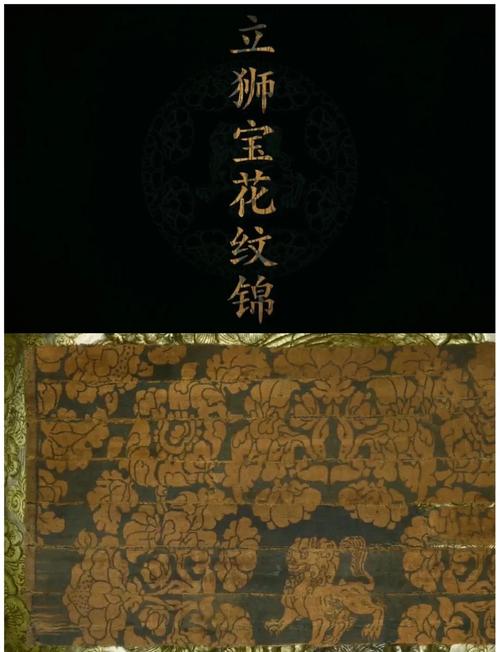 立狮宝花纹锦